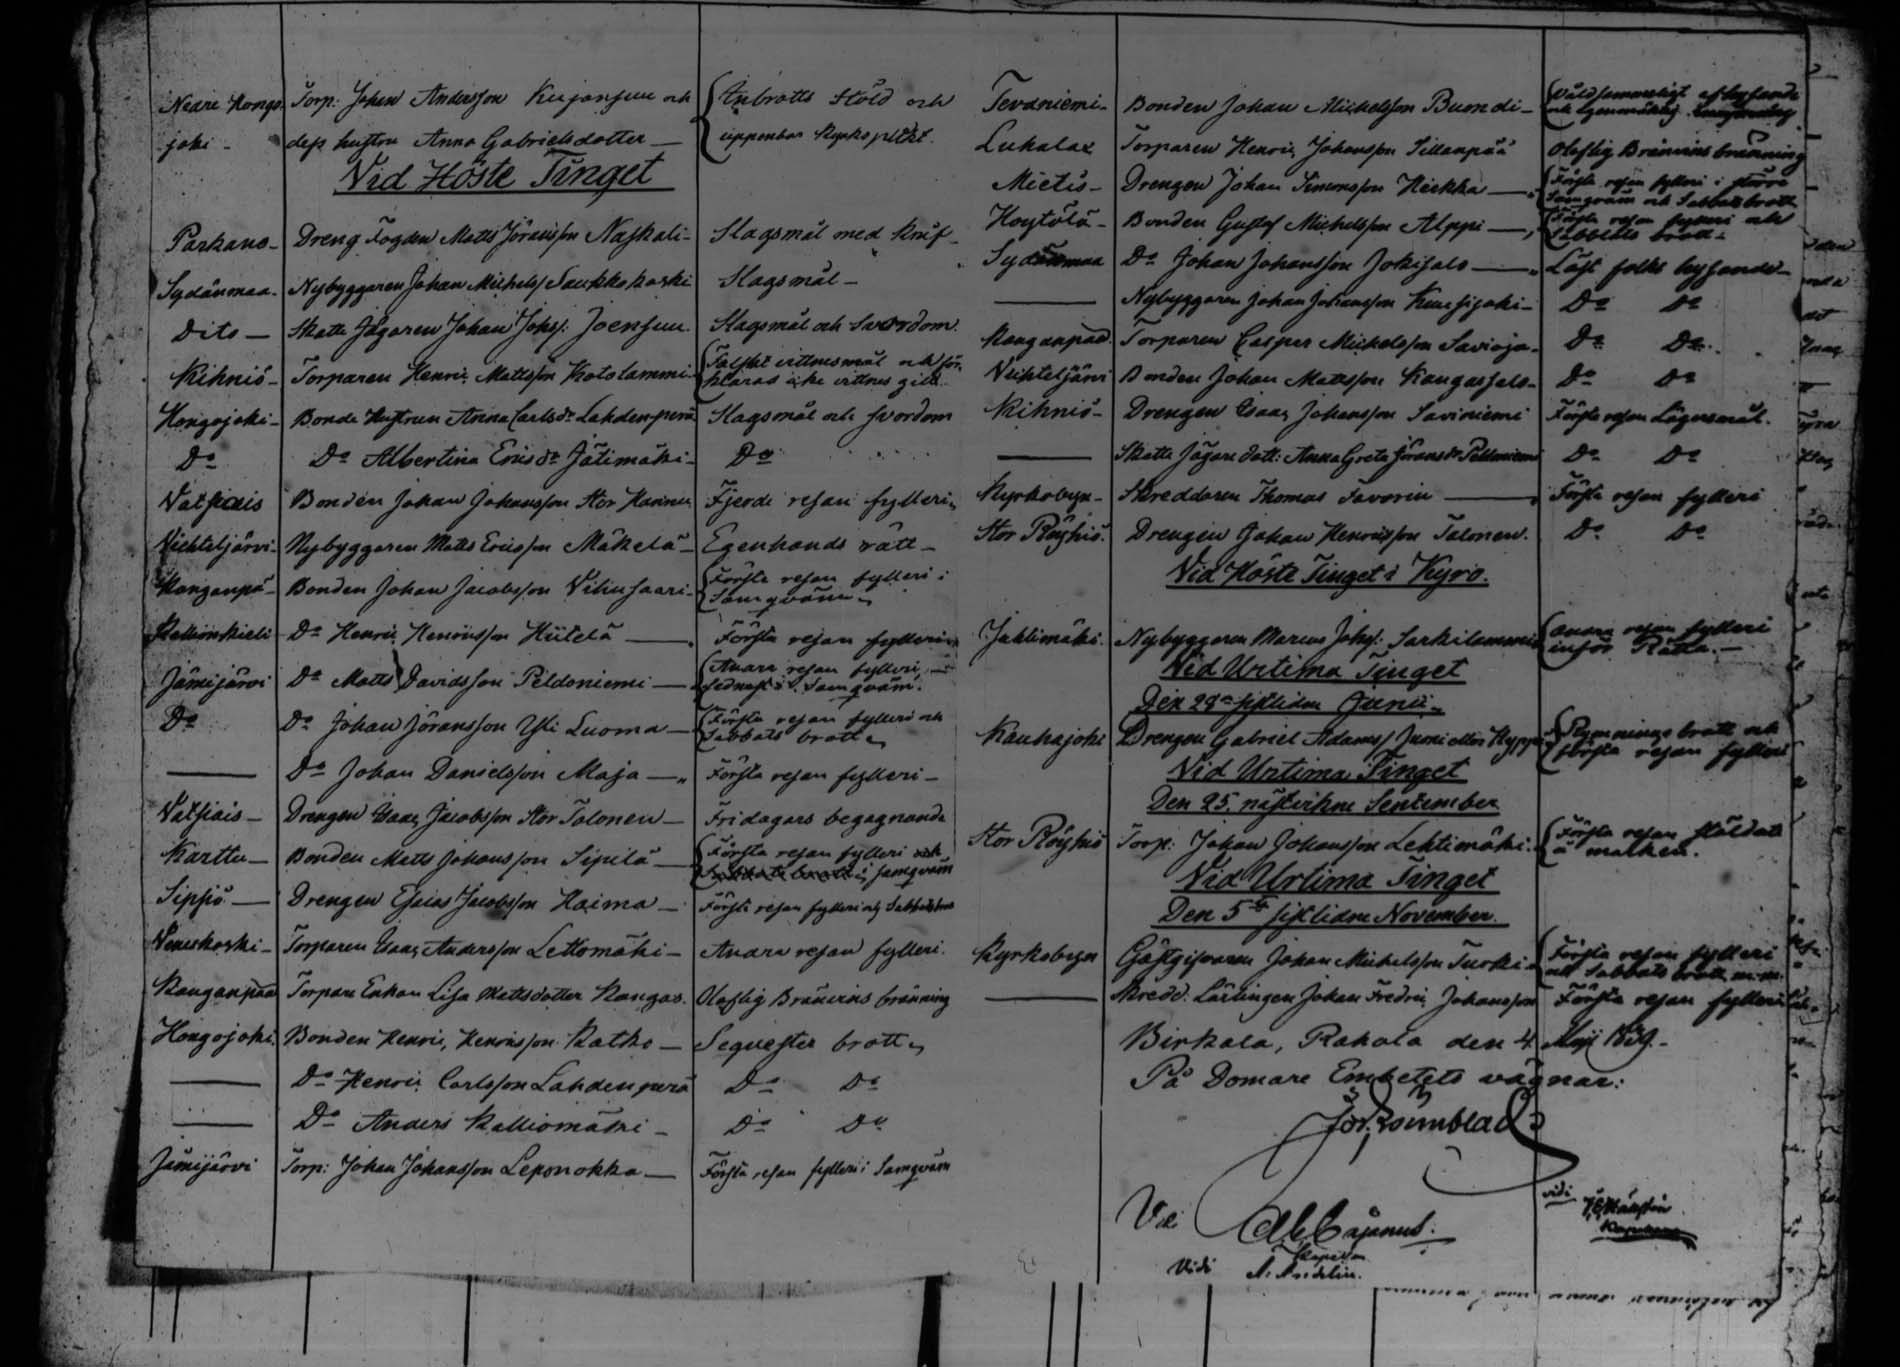 Nedre Hongo Torp: Johan Andersson Kujansuu och Inbrotts Stöld och
joki - dess hustru Anna Gabrielsdotter — uppenbar Kyrkoplikt.
Vid Höste Tinget
Parkano - Dreng Fogden Matts Jöransson Naskali - Slagsmål med knif -
Sydänmaa - Nybyggaren Johan Michelss Saukkokoski Slagsmål -
Dito — Skatte Jägaren Johan Johss: Joensuu Slagsmål och svordom.
Kihniö - Torparen Henric Mattsson Kotolammi - Falskt vittnesmål och för
klaras icke vittnes gill
Hongojoki - Bonde Hustrun Anna Carlsdr Lahdenperä Slagsmål och svordom
Do Do Albertina Ericsdr Jätimäki - Do
Vatsiais Bonden Johan Johansson Stor Hannu Fjerde resan fylleri
Vichteljärvi - Nybyggaren Matts Ericsson Mäkelä - Egenhands rätt -
Kanganpä - Bonden Johan Jacobsson Vilhusaari - Första resan fylleri i
Samqväm
Kallionkieli Do Henric Henricsson Hiitelä — Första resan fylleri
Jämijärvi Do Matts Davidsson Peldoniemi — Andra resan fylleri,
sednast i Samqväm.
Do Do Johan Jöransson Yli Luoma — Första resan fylleri och
Sabbats brott
— Do Johan Danielsson Maja — Första resan fylleri -
Vatsiais — Drengen Isaac Jacobsson Stor Tolonen — Fridagars begagnande
Karttu — Bonden Matts Johansson Sipilä — Första resan fylleri och
Sabbats brott i samqväm
Sippiö — Drengen Esaias Jacobsson Haima — Första resan fylleri och Sabbatsbrott
Veneskoski - Torparen Isaac Andersson Lettomäki - Andra resan fylleri.
Kanganpää Torpare Enkan Lisa Mattsdotter Kangas. Olaflig Bränvins bränning
Hongojoki. Bonden Henric Henricsson Katko — Sequester brott
— Do Henric Carlsson Lahdenperä Do Do
— Do Anders Kalliomäki - Do Do
Jämijärvi Torp: Johan Johansson Leponokka — Första resan fylleri i Samqväm
Tevaniemi - Bonden Johan Michelsson Buondi - Våldsammeligt afhysande
och egenmäktig
Luhalax Torparen Henric Johansson Sillanpää Olaflig Bränvins bränning
Mietis - Drengen Johan Simonsson Heikka — Första resan fylleri i större
Samqväm och Sabbatsbrott
Höytölä - Bonden Gustaf Michelsson Alppi — Första resan fylleri och
Sabbats brott -
Sydänmaa Do Johan Johansson Jokisalo — Löst folks hysande -
— Nybyggaren Johan Johansson Kuusijoki - Do Do
Kanganpää. Torparen Casper Michelsson Savioja - Do Do
Vichteljärvi Bonden Johan Mattsson Kangassalo - Do Do
Kihniö - Drengen Isaac Johansson Saviniemi Första resan Lägersmål.
— Skatte Jägare dott: Anna Greta Jöransdr Peldoniemi Do Do
Kyrkobyn - Skreddaren Thomas Favorin — Första resan fylleri
Stor Röyhiö. Drengen Johan Henricsson Talonen. Do Do
Vid Höste Tinget i Kyro.
Jahlimäki. Nybyggaren Marcus Johss: Sarkilammi Andra resan fylleri
inför Rätta. —
Vid Urtima Tinget
Den 28de sistlidne Junii
Kauhajoki Drengen Gabriel Adamss Jumi eller Hyppi Rymnings brott och
första resan fylleri
Vid Urtima Tinget
Den 25. nästvikne September
Stor Röyhiö Torp: Johan Johansson Lehtimäki. Första resan stöld
å marken.
Vid Urtima Tinget
Den 5te sistlidne November.
Kyrkobyn Gästgifvaren Johan Michelsson Turki - Första resan fylleri
och Sabbats brott m. m.
— Skredd. Lärlingen Johan Fredric Johansson Första resan fylleri
Birkala, Rakola den 4 Maji 1839.
På Domare Embetets vägnar:
Vidi
Vidi
Kapellan
vidi